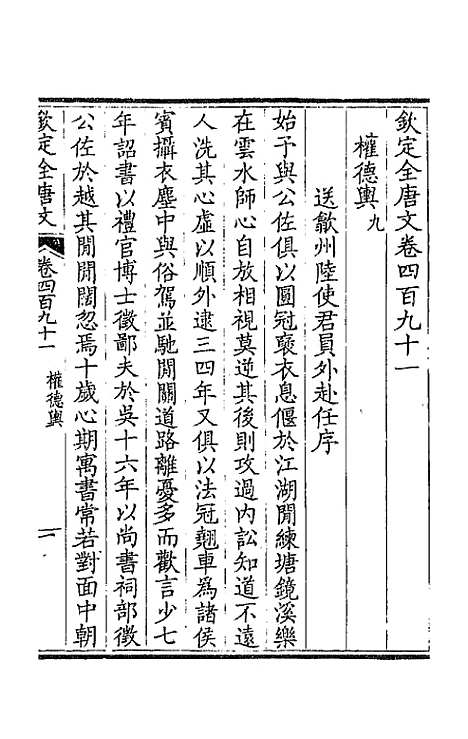 欽定全唐文卷四百九十一
權德輿九
送歙州陸使君員外赴任序
始予與公佐俱以圜冠褒衣息偃於江湖閒練塘鏡溪樂
在雲水師心自放相視莫逆其後則攻過內訟知道不遠
人洗其心虛以順外逮三四年又俱以法冠翹車爲諸侯
賓攝衣塵中與俗駕並馳閒關道路離憂多而歡言少七
年詔書以禮官博士徵鄙夫於吳十六年以尚書祠部徵
公佐於越其閒閒闊忽焉十歲心期寓書常若對面中朝
欽定全唐文
卷四百九十一
權德輿
一